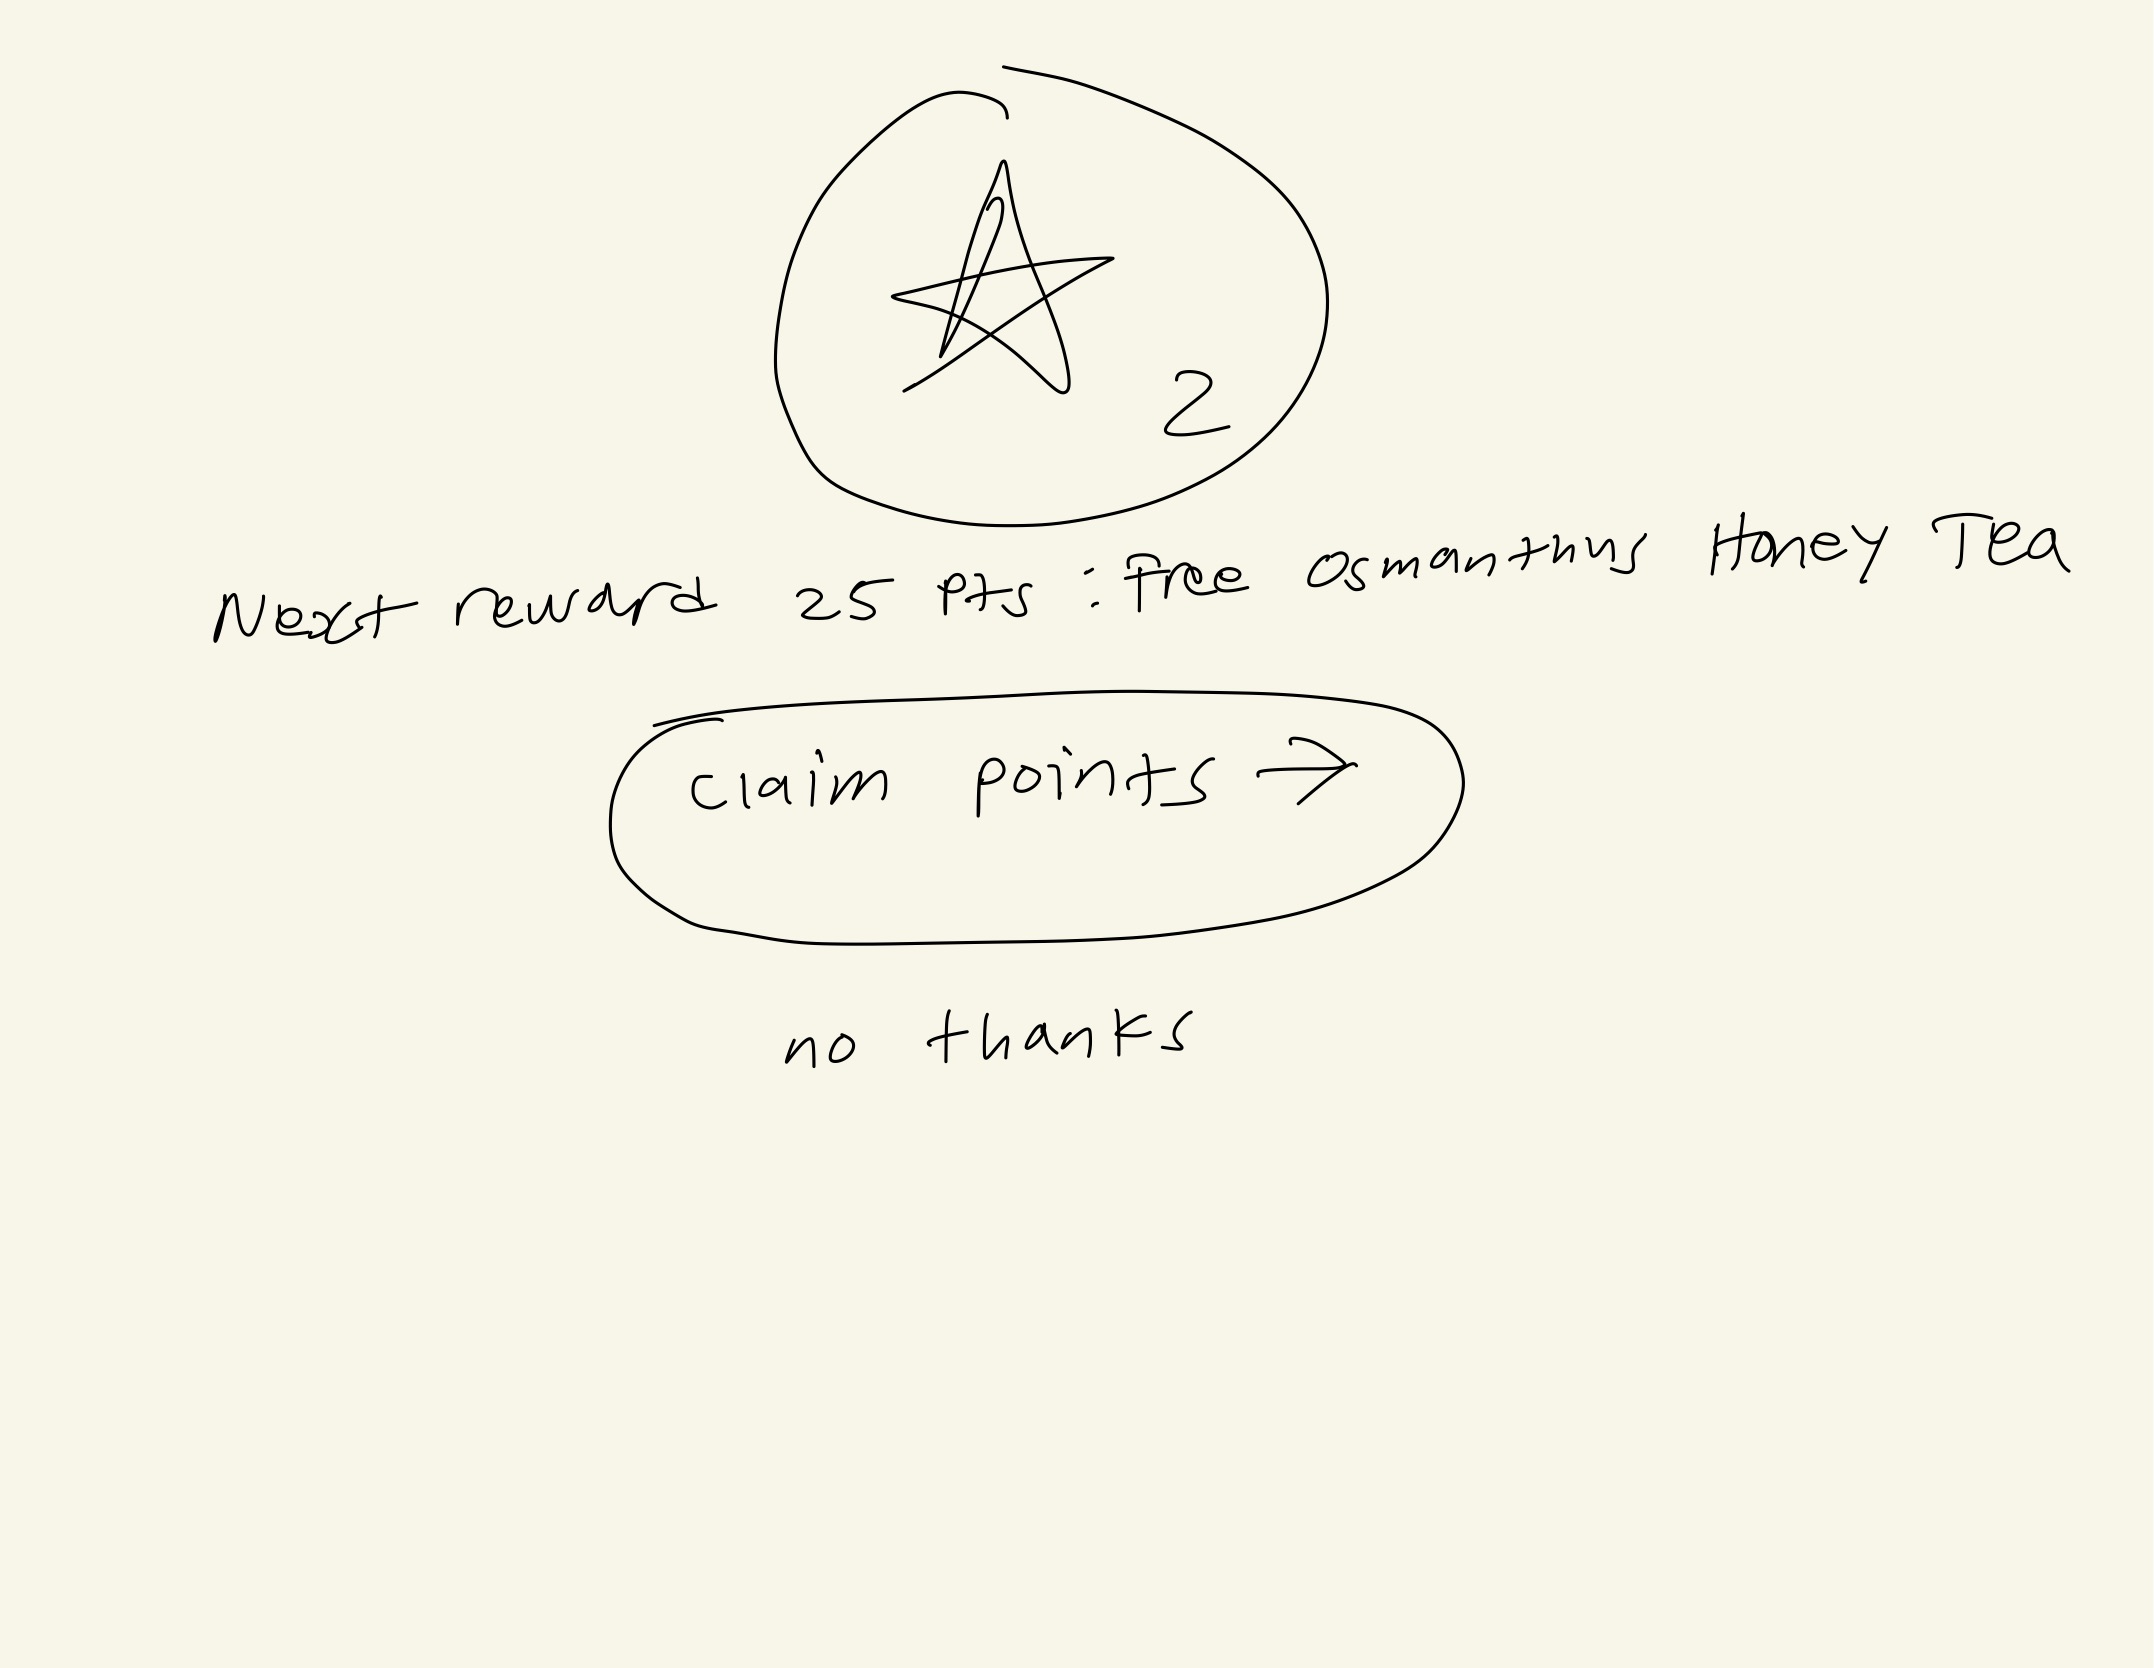 2
Next reward 25 pts : Free Osmanthus Honey Tea
claim points →
no thanks